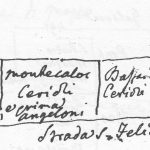 montecalos
Ceridli
e prima
angeloni
Bassari
Ceridli
Strada S. Feli